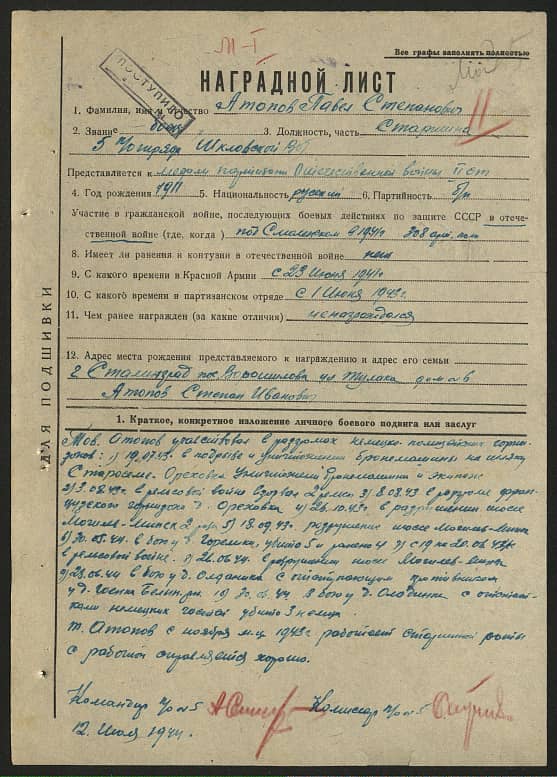 М-I
Все графы заполнять полностью
ПОСТУПИЛО
НАГРАДНОЙ ЛИСТ
II
1. Фамилия, имя и отчество Атопов Павел Степанович
2. Звание боец 3. Должность, часть Старшина
5 п/отряда Шкловской ВОГ
Представляется к медали партизану Отечественной войны II ст
4. Год рождения 1911 5. Национальность русский 6. Партийность б/п
Участие в гражданской войне, последующих боевых действиях по защите СССР в отече-
ственной войне (где, когда) под Смоленском в 1941г 308
8. Имеет ли ранения и контузии в отечественной войне нет
9. С какого времени в Красной Армии с 23 Июня 1941г
10. С какого времени в партизанском отряде с 1 Июня 1943г.
11. Чем ранее награжден (за какие отличия) ненаграждался
12. Адрес места рождения представляемого к награждению и адрес его семьи
г. Сталинград пос. Ворошилова ул Тулака дом
Атопов Степан Иванович
ДЛЯ ПОДШИВКИ
1. Краткое, конкретное изложение личного боевого подвига или заслуг
Тов. Атопов участвовал в разгромах немецко-полицейских гарни-
зонов: 1) 19.07.43г. в подрыве и уничтожении бронемашины на шляху
Староселье-Ореховка Уничтожены бронемашина и экипаж
2) 3.08.43г. в рельсовой войне взорвал 2 рельса 3) 8.08.43 в разгроме фран-
цузского гарнизона д. Ореховка 4) 26.10.43г. в разрушении шоссе
Могилев-Минск 5) 18.09.43г. разрушение шоссе Могилев-Минск
30.05.44г. в бою у д. Горелка, убито 5 и ранено 4 с 19 на 20.06.43г
в рельсовой войне. 26.06.44г. в разрушении шоссе Могилев-Минск
28.06.44 в бою у д. с отступающим противником
у д. 30.06.44 в бою у д. с остат-
ками немецких частей убито 3 немца.
т. Атопов с ноября м-ца 1943г работает старшиной роты
с работой справляется хорошо.
Командир п/о №5 Комиссар п/о №5
12 Июля 1944г.